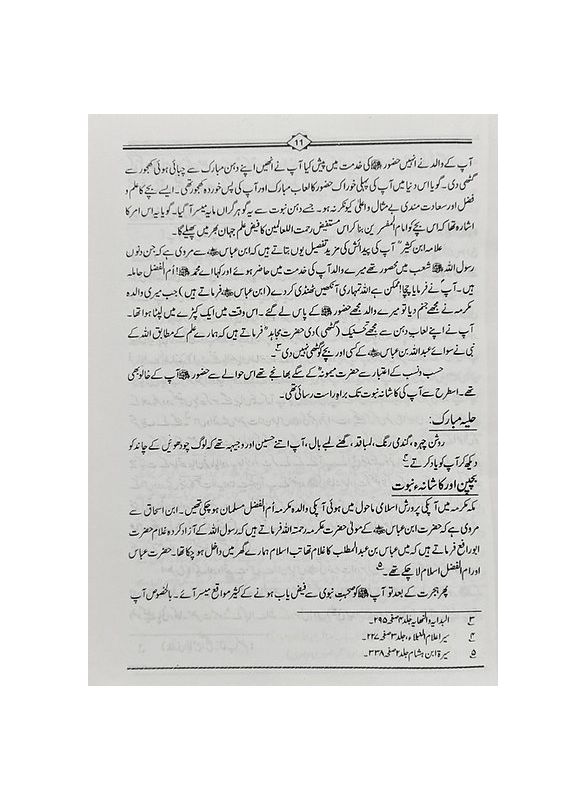 11
آپ کے والد نے انہیں حضور ﷺ کی خدمت میں پیش کیا آپ نے انھیں اپنے دہن مبارک سے چبائی ہوئی کھجور سے
گھٹی دی۔ گویا اس دنیا میں آپ کی پہلی خوراک حضور کا لعاب مبارک اور آپ کی پس خوردہ کھجور تھی۔ ایسے بچے کا علم و
فضل اور سعادت مندی بے مثال و اعلیٰ کیونکر نہ ہو۔ جسے دہن نبوت سے یہ گوہر گراں مایہ میسر آ گیا۔ گویا یہ اس امر کا
اشارہ تھا کہ اس بچے کو امام المفسرین بنا کر اس مستفیض رحمت اللعالمین کا فیض علم جہان بھر میں پھیلے گا۔
علامہ ابن کثیرؒ آپ کی پیدائش کی مزید تفصیل یوں بتاتے ہیں کہ ابن عباس ؓ سے مروی ہے کہ جن دنوں
رسول اللہ ﷺ شعب میں محصور تھے میرے والد آپ کی خدمت میں حاضر ہوئے اور کہا اے محمد ﷺ! اُم الفضل حاملہ
ہیں۔ آپ نے فرمایا چچا! ممکن ہے اللہ تمہاری آنکھیں ٹھنڈی کر دے (ابن عباس ؓ فرماتے ہیں) جب میری والدہ
مکرمہ نے مجھے جنم دیا تو میرے والد مجھے حضور ﷺ کے پاس لے گئے۔ اس وقت میں ایک کپڑے میں لپٹا ہوا تھا۔
آپ نے اپنے لعاب دہن سے مجھے تحسنیک (گھٹی) دی حضرت مجاہدؒ فرماتے ہیں کہ ہمارے علم کے مطابق اللہ کے
نبی نے سوائے عبداللہ بن عباس ؓ کے کسی اور بچے کو گھٹی نہیں دی۔ ۳
حسب و نسب کے اعتبار سے حضرت میمونہؓ کے سگے بھانجے تھے اس حوالے سے حضور ﷺ آپ کے خالو بھی
تھے۔ اسطرح سے آپ کی کاشانہ نبوت تک براہ راست رسائی تھی۔
حلیہ مبارک:
روشن چہرہ، گندمی رنگ، لمبا قد، گھنے لمبے بال، آپ اتنے حسین اور وجیہہ تھے کہ لوگ چودھویں کے چاند کو
دیکھ کر آپ کو یاد کرتے۔ ۴
بچپن اور کاشانہء نبوت
مکہ مکرمہ میں آپکی پرورش اسلامی ماحول میں ہوئی آپکی والدہ مکرمہ اُم الفضل مسلمان ہو چکی تھیں۔ ابن اسحاق سے
مروی ہے کہ حضرت ابن عباس ؓ کے مولیٰ حضرت عکرمہ رحمت اللہ فرماتے ہیں کہ رسول اللہ کے آزاد کردہ غلام حضرت
ابو رافع فرماتے ہیں کہ میں عباس بن عبدالمطلب کا غلام تھا تب اسلام ہمارے گھر میں داخل ہو چکا تھا۔ حضرت عباس
اور ام الفضل اسلام لا چکے تھے۔ ۵
پھر ہجرت کے بعد تو آپ ﷺ کو صحبتِ نبوی سے فیض یاب ہونے کے کثیر مواقع میسر آئے۔ بالخصوص آپ
۳ البدایہ والنھایہ جلد ۴ صفحہ ۲۹۵۔
۴ سیر اعلام النبلاء، جلد ۳ صفحہ ۲۲۷۔
۵ سیرۃ ابن ہشام جلد ۲ صفحہ ۳۳۸۔